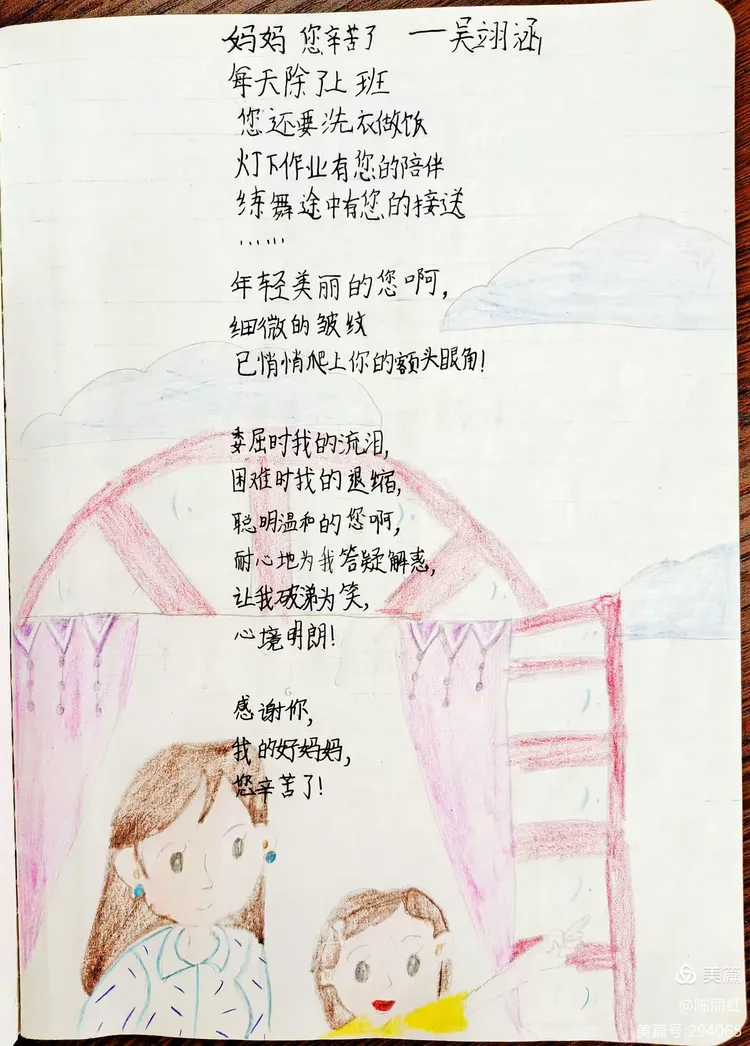 妈妈 您辛苦了 一吴翊涵
每天除了上班
您还要洗衣做饭
灯下作业有您的陪伴
练舞途中有您的接送
……
年轻美丽的您啊,
细微的皱纹
已悄悄爬上你的额头眼角!
委屈时我的流泪,
困难时我的退缩,
聪明温和的您啊,
耐心地为我答疑解惑,
让我破涕为笑,
心境明朗!
感谢你,
我的好妈妈,
您辛苦了!
美篇
@陈丽红
美篇号:294065